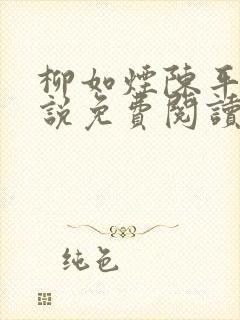 柳如煙陳平
說免費閱讀
纯色